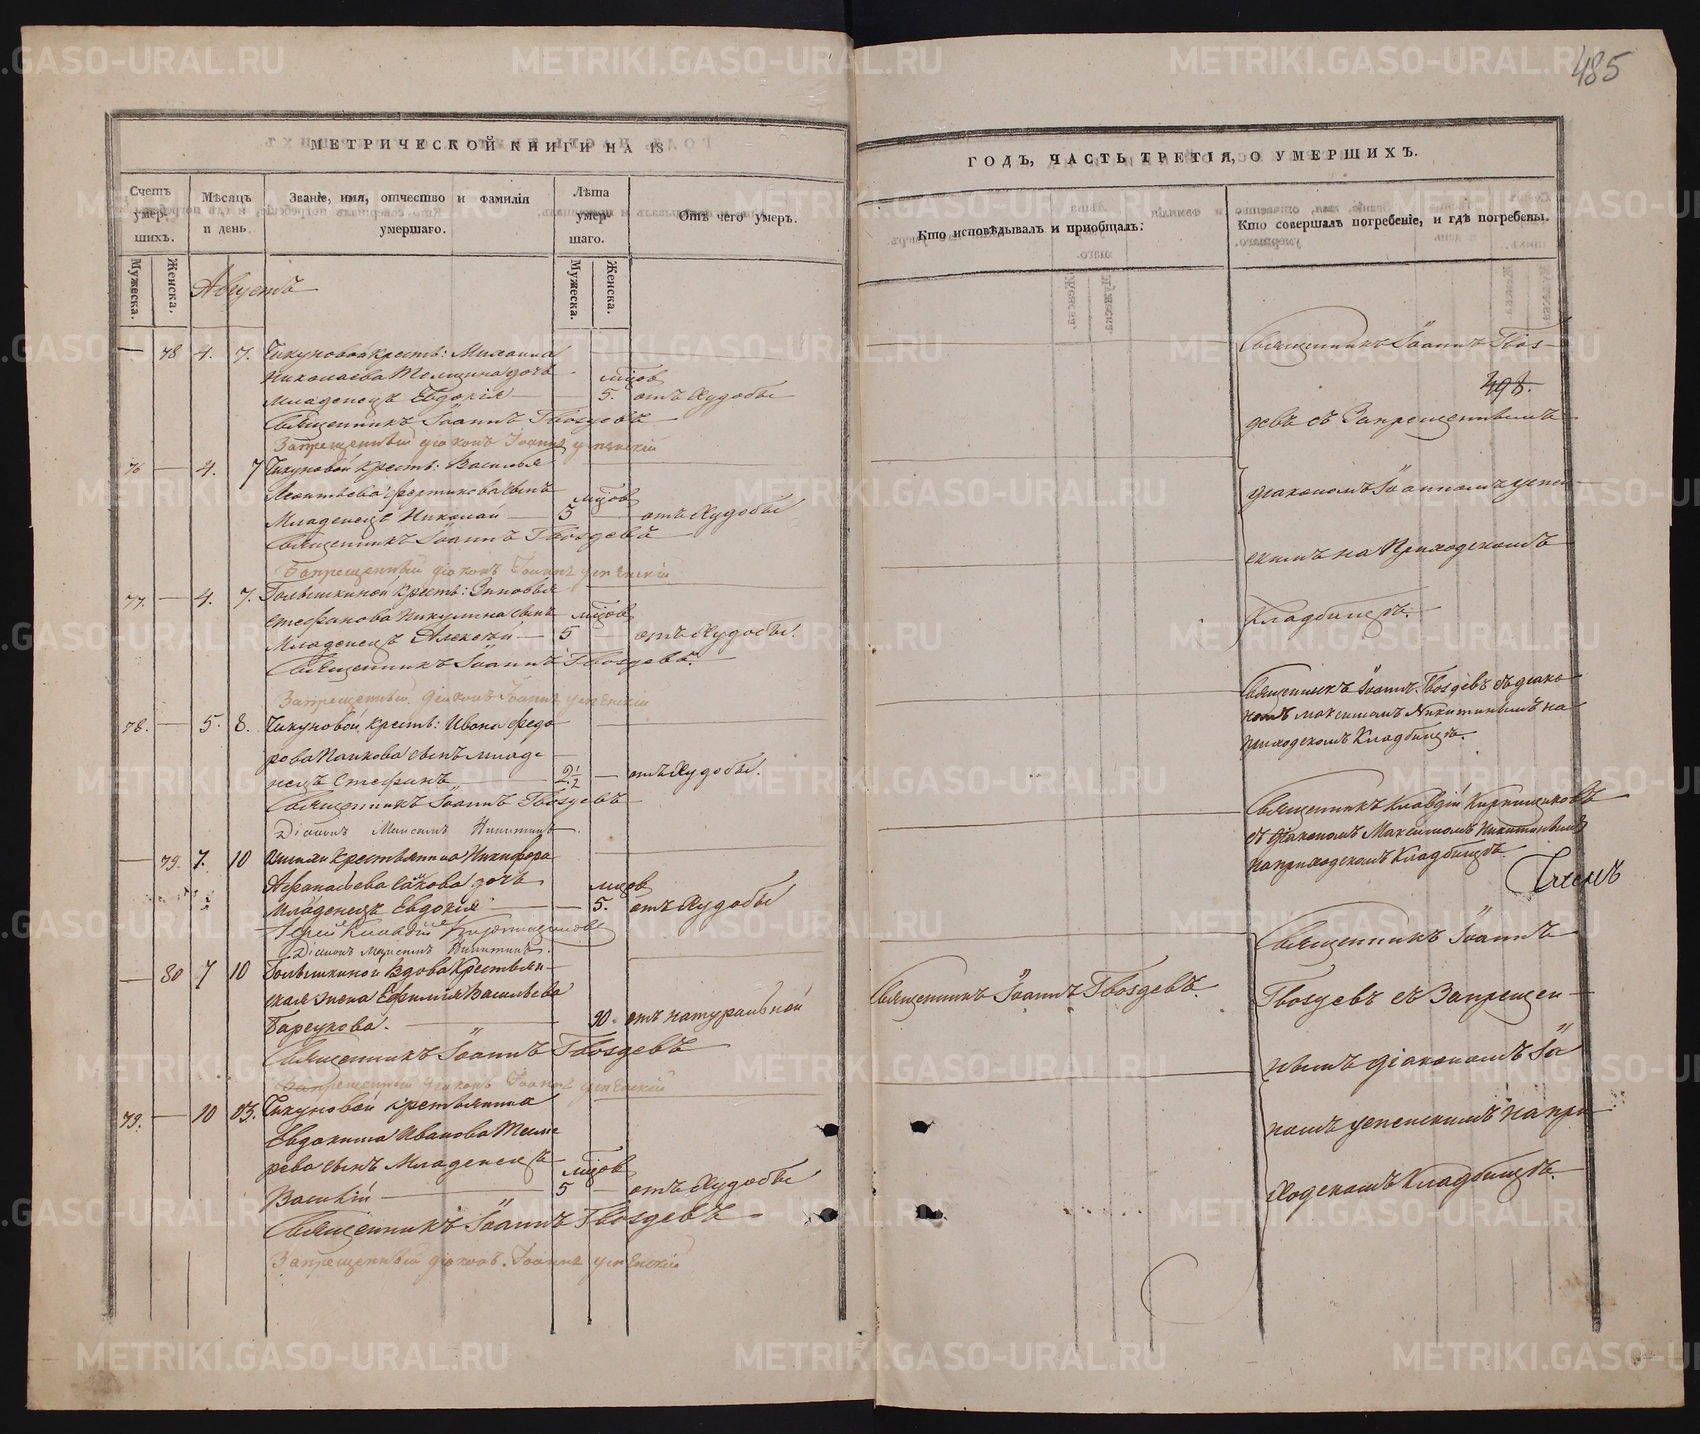 485
МЕТРИЧЕСКОЙ КНИГИ НА 18
ГОДЪ, ЧАСТЬ ТРЕТІЯ, О УМЕРШИХЪ.
Счетъ умер-шихъ.
Мѣсяцъ и день
Званіе, имя, отчество и фамилія умершаго.
Лѣта умер-шаго.
Отъ чего умеръ.
Кто исповѣдывалъ и пріобщалъ.
Кто совершалъ погребеніе, и гдѣ погребены.
Мужеска.
Женска.
Мужеска.
Женска.
Августъ
— 78 4. 7. Чикуновой крестъ: Михаила
Николаева дочь
младенецъ Евдокія — 5. мцов отъ Худобы
Священникъ Іоаннъ Гвоздевъ
Запрещенный діаконъ Іоаннъ Успенскій
76 — 4. 7 Чикуновой крестъ: Василья
Леонтьева сынъ
Младенецъ Николай — 5 мцов отъ Худобы
Священникъ Іоаннъ Гвоздевъ
Запрещенный діаконъ Іоаннъ Успенскій
77. — 4. 7. крестъ: Зиновья
Стефанова Никулина сынъ
Младенецъ Алексѣй — 5 мцов отъ Худобы.
Священникъ Іоаннъ Гвоздевъ.
Запрещенный діаконъ Іоаннъ Успенскій
78. — 5. 8. Чикуновой крестъ: Ивана Федо
рова сынъ младе
нецъ Стефанъ — 2 1/2 — отъ Худобы.
Священникъ Іоаннъ Гвоздевъ
Діаконъ Максимъ Никитинъ
— 79. 7. 10 крестьянина Никифора
Афанасьева дочь
Младенецъ Евдокія — 5. мцов отъ Худобы
Іерей Клавдій Кирпищиковъ
Діаконъ Максимъ Никитинъ.
— 80 7 10 вдова Крестьян-
ская жена Ефимія Васильева
Барсукова. — 90. отъ натуральной
Священникъ Іоаннъ Гвоздевъ
Запрещенный діаконъ Іоаннъ Успенскій
79. — 10 13. Чикуновой крестьянина
Евдокима Иванова
сынъ Младенецъ
Василій — 5 мцов отъ Худобы
Священникъ Іоаннъ Гвоздевъ
Запрещенный діаконъ. Іоаннъ Успенскій
Священникъ Іоаннъ Гвоздевъ.
Священникъ Іоаннъ Гвоз-
девъ съ Запрещеннымъ
діакономъ Іоанномъ Успен-
скимъ на Приходскомъ
Кладбищѣ.
Священникъ Іоаннъ Гвоздевъ съ діако-
номъ Максимомъ Никитинымъ на
приходскомъ Кладбищѣ.
Священникъ Клавдій Кирпищиковъ
съ діакономъ Максимомъ Никитинымъ
на приходскомъ Кладбищѣ.
Священникъ Іоаннъ
Гвоздевъ съ Запрещен-
нымъ діакономъ Іоа
номъ Успенскимъ на при
ходскомъ Кладбищѣ.
METRIKI.GASO-URAL.RU